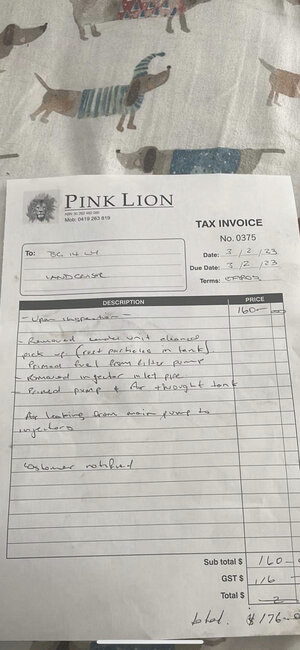 PINK LION
Mob: 0419 283 819
TAX INVOICE
No. 0375
To:
Date: 3/2/23
LANDCRUISER
Due Date: 3/2/23
Terms:
DESCRIPTION PRICE
- Upon inspection - 160-00
- Removed sender unit cleaned
pick up (rust particles in tank).
Primed fuel from filter pump
- Removed injector inlet pipe
- Primed pump & Air throught tank
Air leaking from main pump to
injectors
Customer notified
Sub total $ 160-
GST $ 16-
Total $
total. $176-0